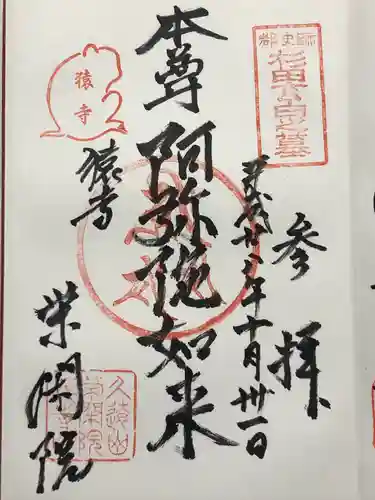 参拝
平成廿八年十月卅一日
本尊
阿弥陀如来
猿寺
栄閑院
都史跡
杉田玄白之墓
猿寺
久遠山
栄閑院